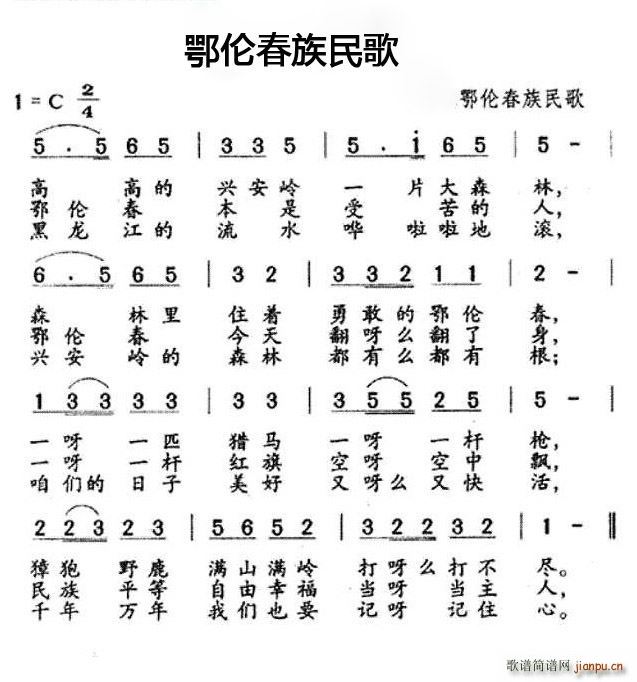 鄂伦春族民歌
1=C 2/4 鄂伦春族民歌
5 . 5 6 5 | 3 3 5 | 5 . i 6 5 | 5 - |
高 高的 兴安岭 一 片大森 林,
鄂 伦 春 本 是 受 苦的 人,
黑 龙 江的 流 水 哗 啦啦地 滚,
6 . 5 6 5 | 3 2 | 3 3 2 1 1 | 2 - |
森 林里 住着 勇敢的鄂伦 春,
鄂 伦 春 今天 翻呀么翻了 身,
兴 安 岭的 森林 都有么都有 根;
1 3 3 3 3 | 3 3 | 3 5 5 2 5 | 5 - |
一 呀 一匹 猎马 一呀 一杆 枪,
一 呀 一杆 红旗 空呀 空中 飘,
咱 们的 日子 美好 又呀么又快 活,
2 2 3 2 3 | 5 6 5 2 | 3 2 2 3 2 | 1 - ‖
獐 狍 野鹿 满山满岭 打呀么打不 尽。
民 族 平等 自由幸福 当呀 当主 人,
千 年 万年 我们也要 记呀 记住 心。
歌谱简谱网 jianpu.cn